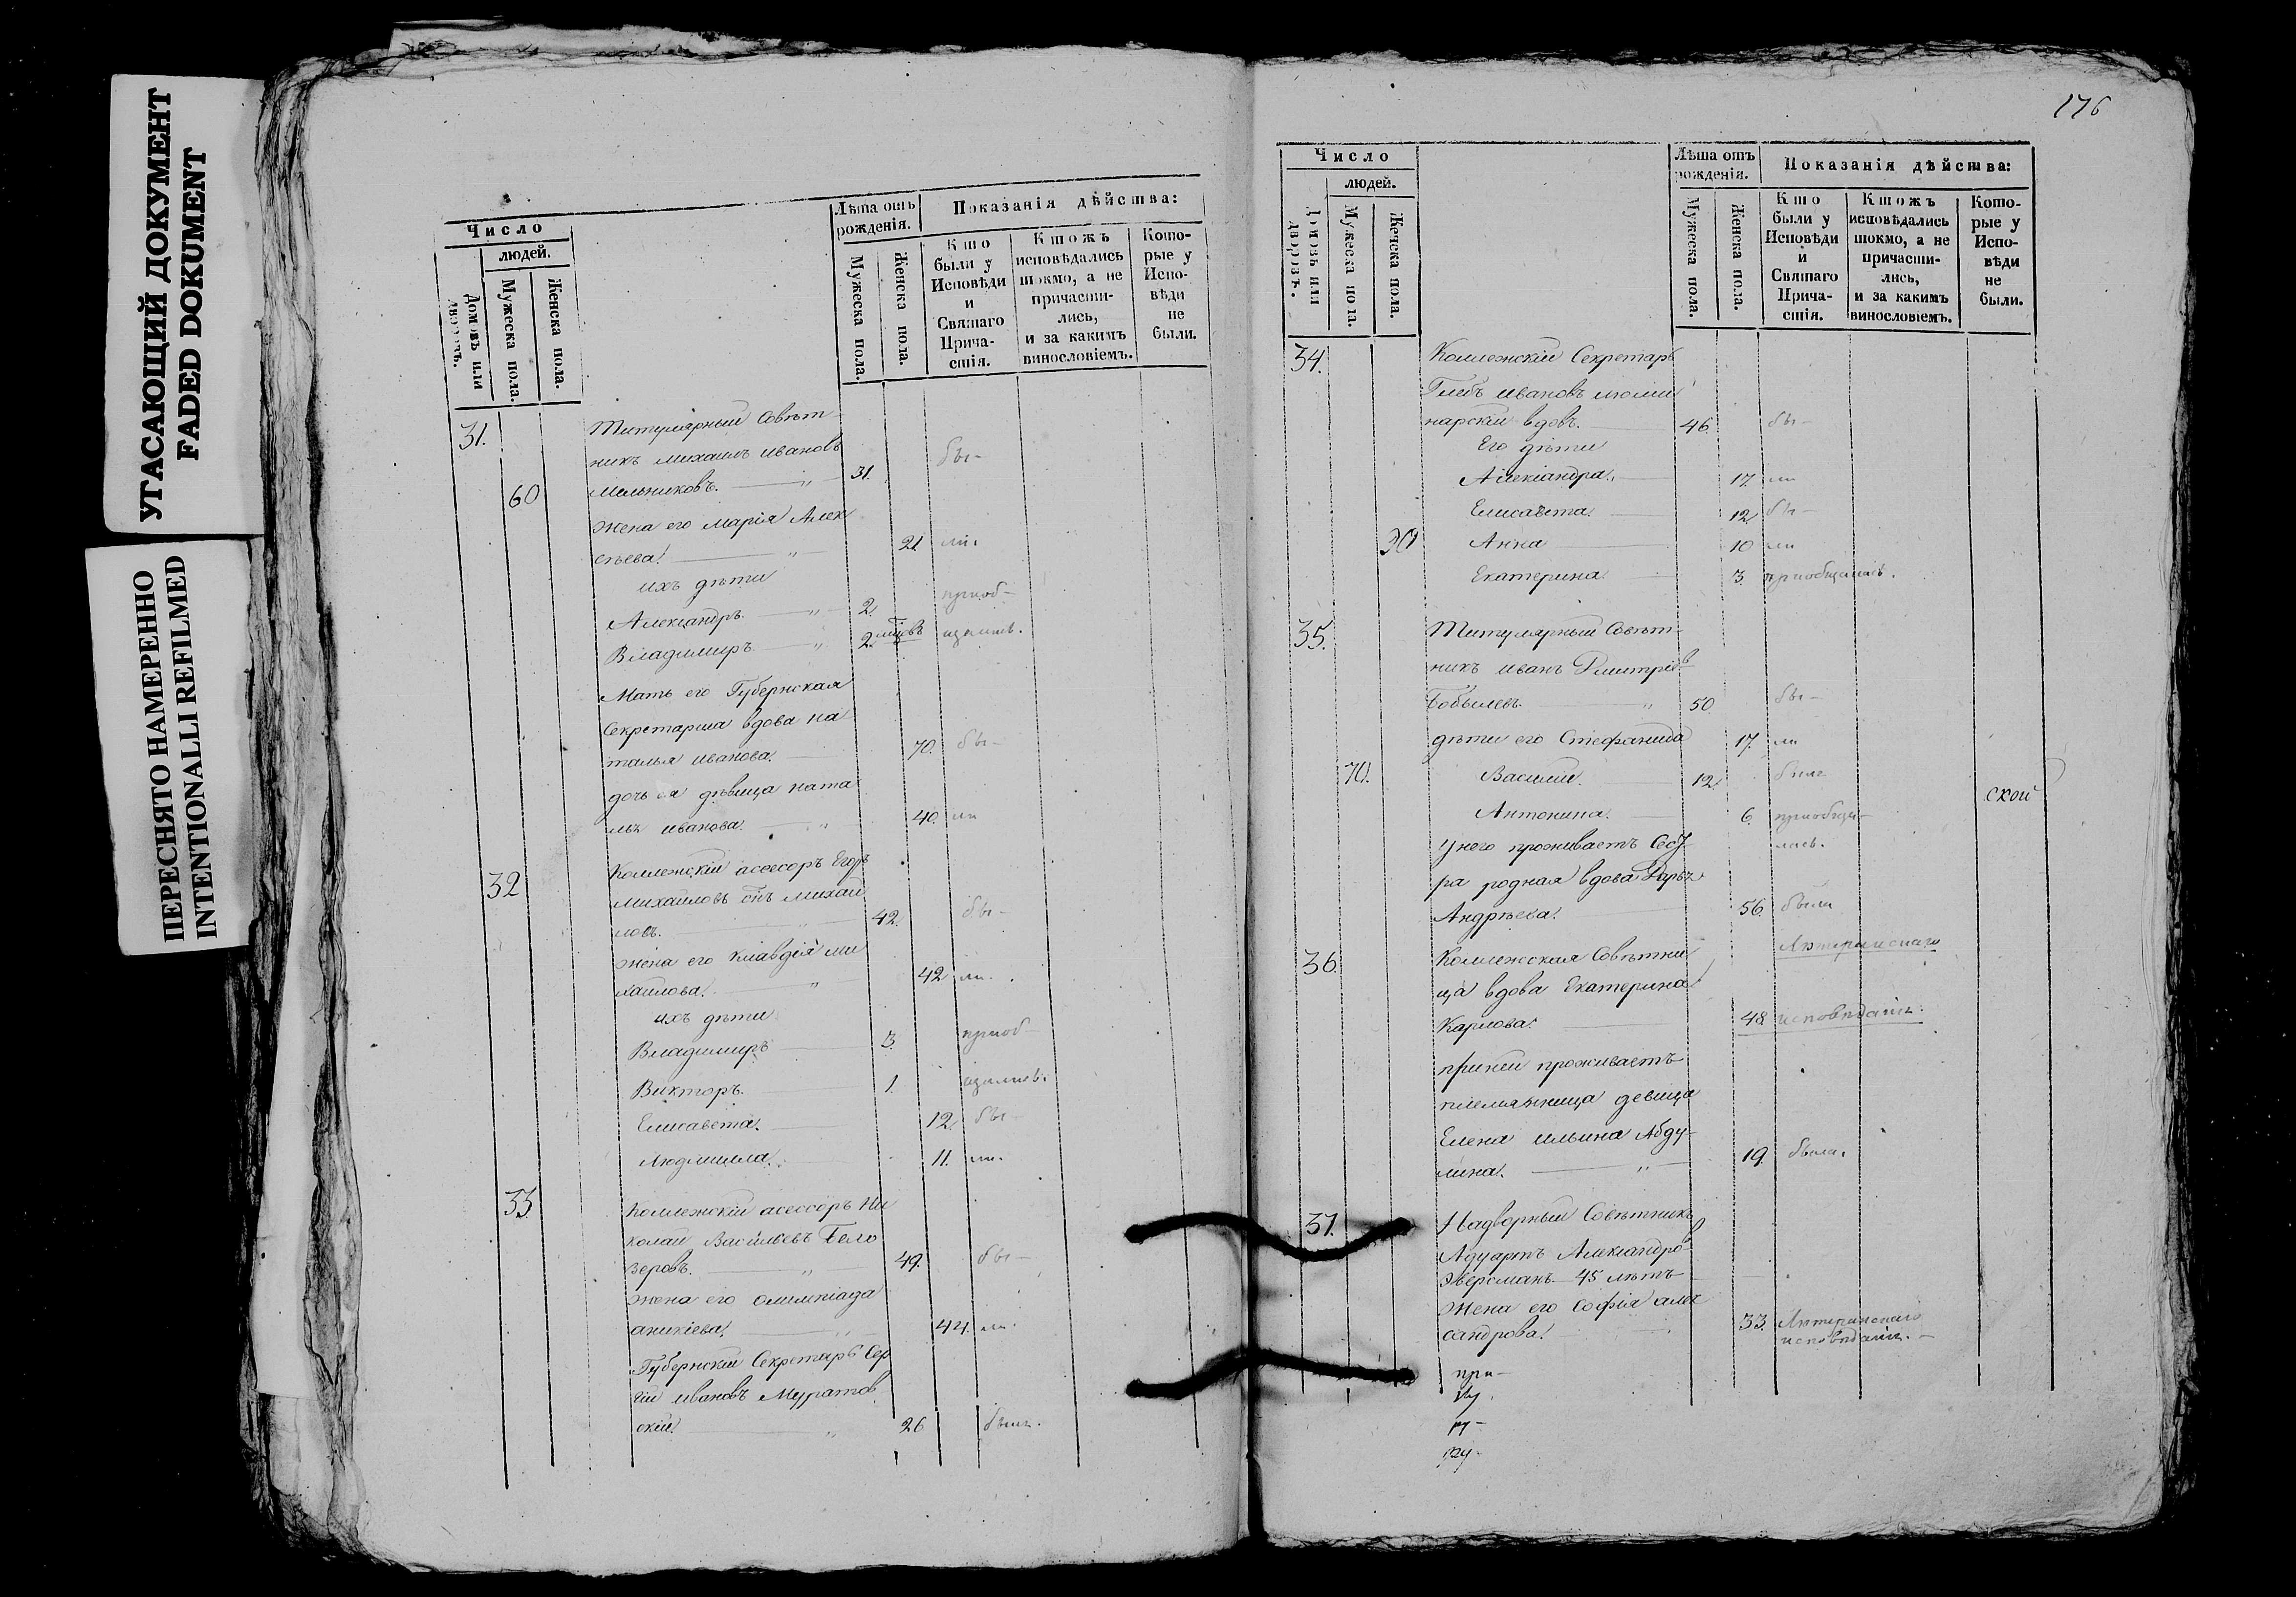 УГАСАЮЩИЙ ДОКУМЕНТ
FADED DOKUMENT
ПЕРЕСНЯТО НАМЕРЕННО
INTENTIONALLI REFILMED
Число
людей.
Домовъ или дворовъ.
Мужеска пола.
Женска пола.
Лѣта отъ рожденія.
Мужеска пола.
Женска пола.
Показанія дѣйства:
Кто были у Исповѣди и Святаго Прича-стія.
Ктожъ исповѣдались токмо, а не причасти-лись, и за какимъ винословіемъ.
Кото-рые у Испо-вѣди не были.
31.
Титулярный Совѣт-
никъ Михаилъ Ивановъ
60 Мельниковъ. 31. бы-
Жена его Марія Алек
сѣева. 21 ли.
ихъ дѣти
Александръ 2. приоб-
Владимиръ 2 мцовъ щались.
Мать его Губернская
Секретарша вдова На
талья Иванова. 70. бы-
дочь ея дѣвица Ната
лья Иванова. 40. ли
32 Коллежскій асессоръ Егоръ
Михайловъ сынъ Михай
ловъ. 42. бы-
жена его Клавдія Ми
хайлова. 42 ли.
ихъ дѣти
Владимиръ 3. приоб
Викторъ. 1. щались.
Елисавета. 12 бы-
Людмилла. 11. ли.
33. Коллежскій асессоръ Ни
колай Васильевъ Бело
зеровъ. 49. бы-
жена его Олимпіада
Аникіева. 44. ли.
Губернскій Секретарь Сер
гій Ивановъ Муратов
скій. 26 былъ.
176
Число
людей.
Домовъ или дворовъ.
Мужеска пола.
Женска пола.
Лѣта отъ рожденія.
Мужеска пола.
Женска пола.
Показанія дѣйства:
Кто были у Исповѣди и Святаго Прича-стія.
Ктожъ исповѣдались токмо, а не причасти-лись, и за какимъ винословіемъ.
Кото-рые у Испо-вѣди не были.
34. Коллежскій Секретарь
Глебъ Ивановъ
нарскій вдовъ. 46. бы-
Его дѣти
Александра. 17. ли
Елисавета. 12 бы-
Анна 10 ли
Екатерина 3. приобщались.
35. Титулярный Совѣт-
никъ Иванъ Дмитріев
Бобылевъ. 50. бы-
дѣти его Стефанида 17. ли
70. Василій. 12 были
ской
Антонина. 6. приобщи-
лась.
У него проживаетъ Сест
ра родная вдова Дарья
Андрѣева. 56. была
36. Коллежская Совѣтни
ца вдова Екатерина Лютеранскаго
Карлова. 48 исповѣданія.
при ней проживаетъ
племянница девица
Елена Ильина Абду-
лина. 19. была.
37. Надворный Совѣтникъ
Адуартъ Александров
Эверсманъ 45 лѣтъ
Жена его Софія Алек
сандрова. 33. Лютеранскаго
исповѣданія.
при-